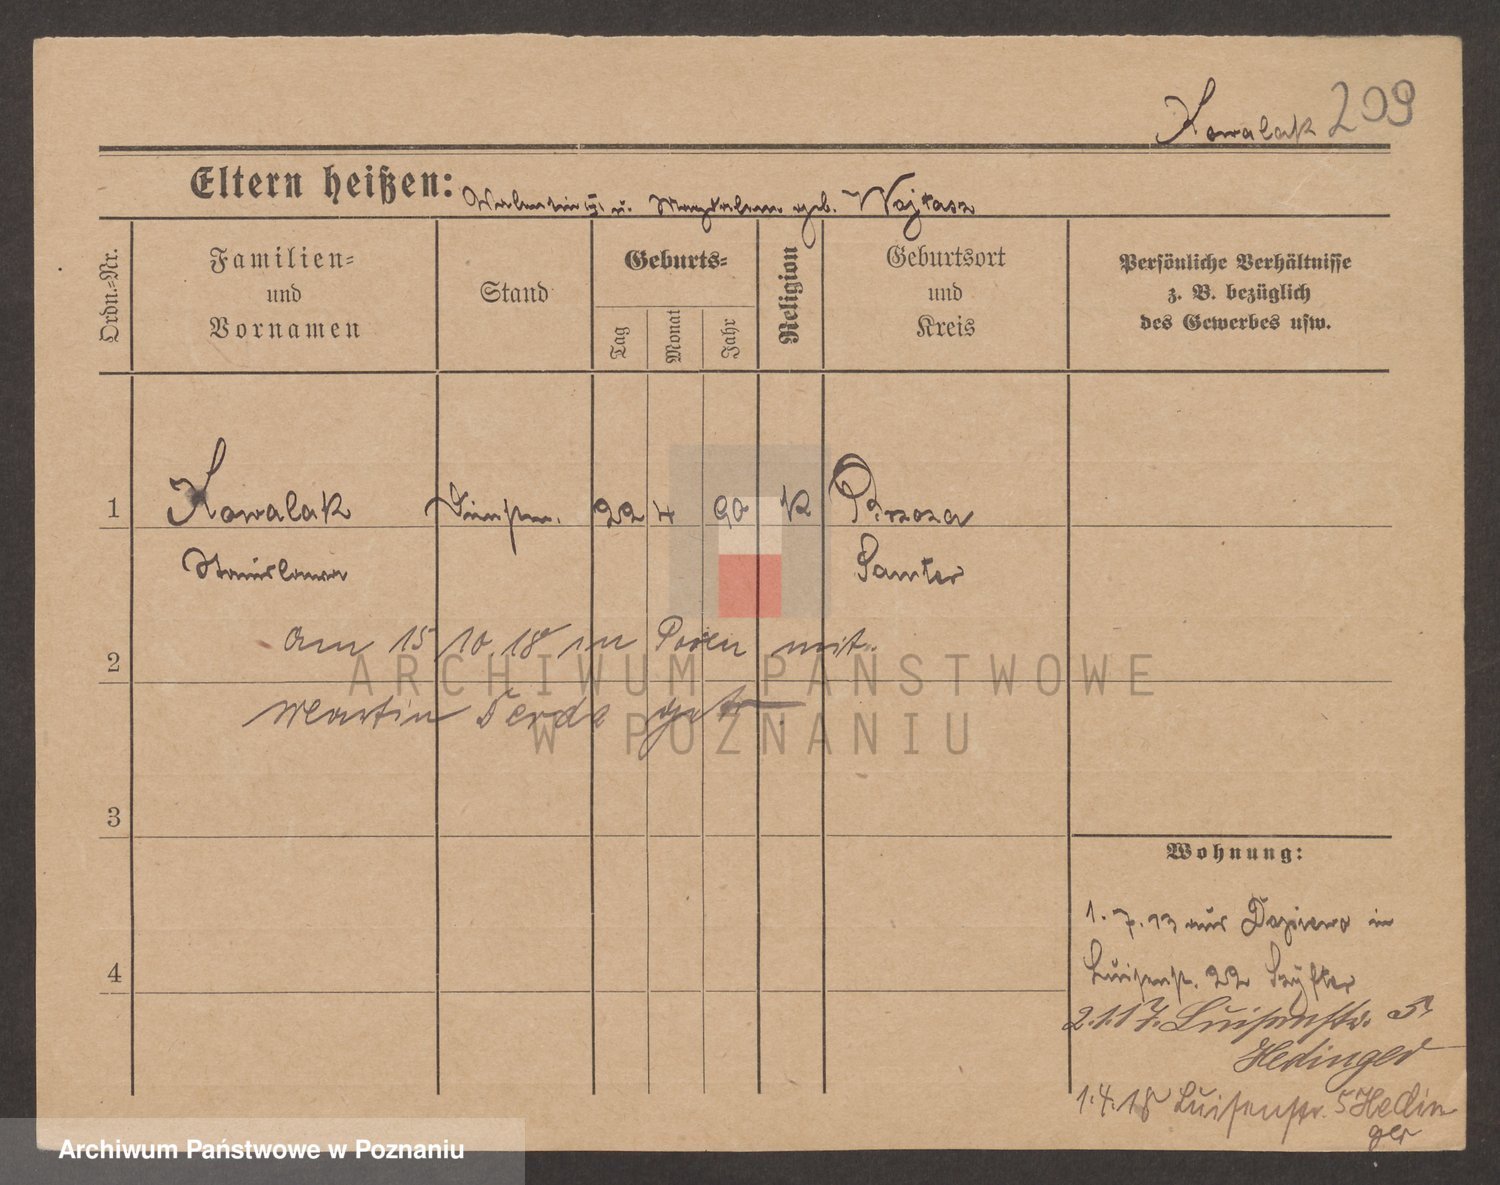 Kowalak 209
Eltern heißen: Valentin u. Magdalena geb. Wojtasz
Ordn.-Nr.
Familien-
und
Vornamen
Stand
Geburts-
Tag
Monat
Jahr
Religion
Geburtsort
und
Kreis
Persönliche Verhältnisse
z. B. bezüglich
des Gewerbes usw.
1 Kowalak 22 4 90 K Brzoza
Stanislawa Samter
Am 15 10. 18 in Posen mit
2
Martin Ferda getr.
3
4
Wohnung:
1. 7. 13 aus in
Luisenstr. 22
2.1.17. Luisenstr. 5
Hedinger
1.4.18 Luisenstr. 5 Hedin
ger
ARCHIWUM PAŃSTWOWE
W POZNANIU
Archiwum Państwowe w Poznaniu